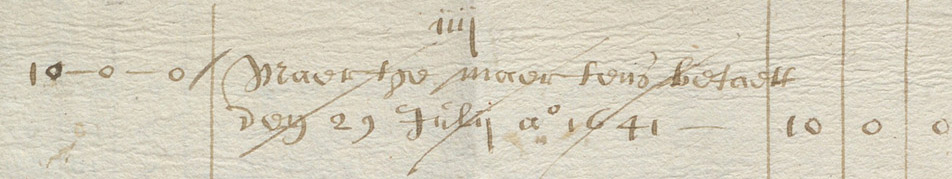 iiij
10 - 0 - 0 / Maertge maertens betaelt
den 29 Julij ao 1641 — 10 0 0